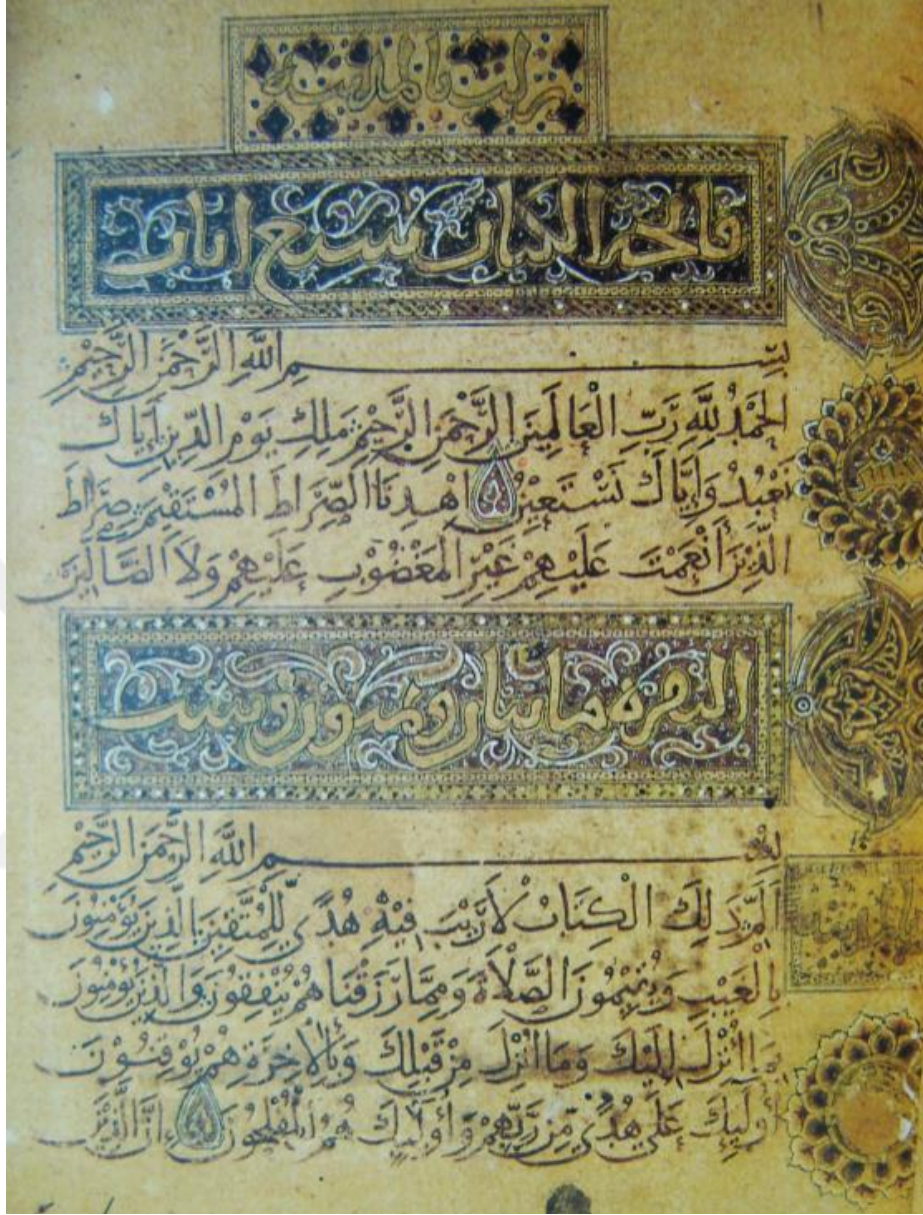 نزلت بالمدينة
فاتحة الكتاب سبع ايات
بِسْمِ اللَّهِ الرَّحْمَنِ الرَّحِيمِ
الْحَمْدُ لِلَّهِ رَبِّ الْعَالَمِينَ الرَّحْمَنِ الرَّحِيمِ مَلِكِ يَوْمِ الدِّينِ إِيَّاكَ
نَعْبُدُ وَإِيَّاكَ نَسْتَعِينُ اهْدِنَا الصِّرَاطَ الْمُسْتَقِيمَ صِرَاطَ
الَّذِينَ أَنْعَمْتَ عَلَيْهِمْ غَيْرِ الْمَغْضُوبِ عَلَيْهِمْ وَلَا الضَّالِّينَ
البقرة مايتان وثمنون وست
بِسْمِ اللَّهِ الرَّحْمَنِ الرَّحِيمِ
الم ذَلِكَ الْكِتَابُ لَا رَيْبَ فِيهِ هُدًى لِلْمُتَّقِينَ الَّذِينَ يُؤْمِنُونَ
بِالْغَيْبِ وَيُقِيمُونَ الصَّلَاةَ وَمِمَّا رَزَقْنَاهُمْ يُنْفِقُونَ وَالَّذِينَ يُؤْمِنُونَ
بِمَا أُنْزِلَ إِلَيْكَ وَمَا أُنْزِلَ مِنْ قَبْلِكَ وَبِالْآخِرَةِ هُمْ يُوقِنُونَ
أُولَئِكَ عَلَى هُدًى مِنْ رَبِّهِمْ وَأُولَئِكَ هُمُ الْمُفْلِحُونَ إِنَّ الَّذِينَ